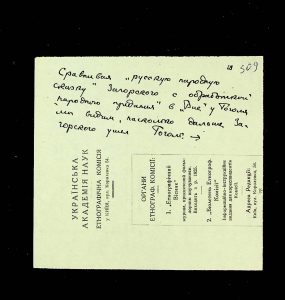 18 509
Сравнивая „русскую народную
сказку" Загорского с обработкой
„народного предания" в „Вие" у Гоголя
мы видим, насколько дальше За-
горского ушел Гоголь →
УКРАЇНСЬКА
АКАДЕМІЯ НАУК
ЕТНОГРАФІЧНА КОМІСІЯ
у КИЇВІ, вул. Короленка 54.
ОРГАНИ
ЕТНОГРАФ. КОМІСІЇ:
1. „Етнографічний
Вісник"
2. „Бюлетень Етнограф.
Комісії"
Адреса Редакції:
Київ, вул. Короленка, 54.